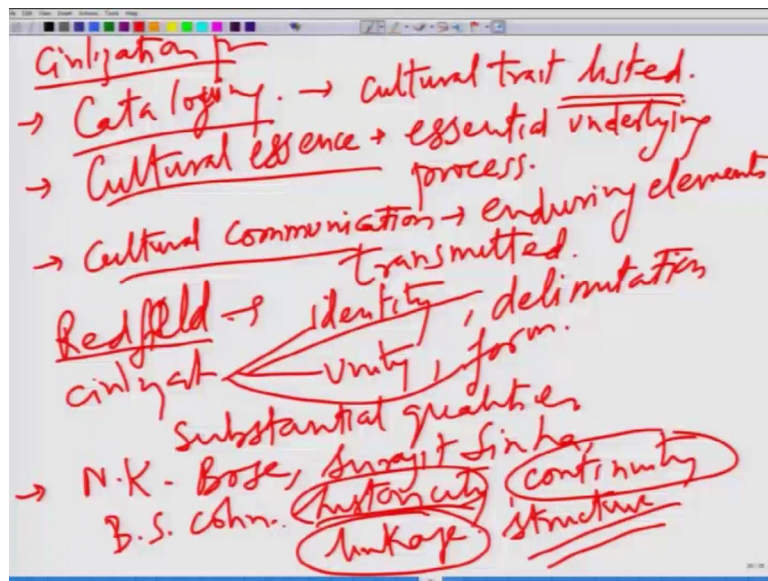 Civilization
→ Cataloging. → cultural trait listed.
→ Cultural essence → essential underlying
process.
→ Cultural communication → enduring elements
transmitted.
Redfield → identity, delimitation
civilizat unity, form.
substantial qualities
→ N.K. Bose, Surajit Sinha,
B.S. Cohn. historicity continuity
linkage. structure